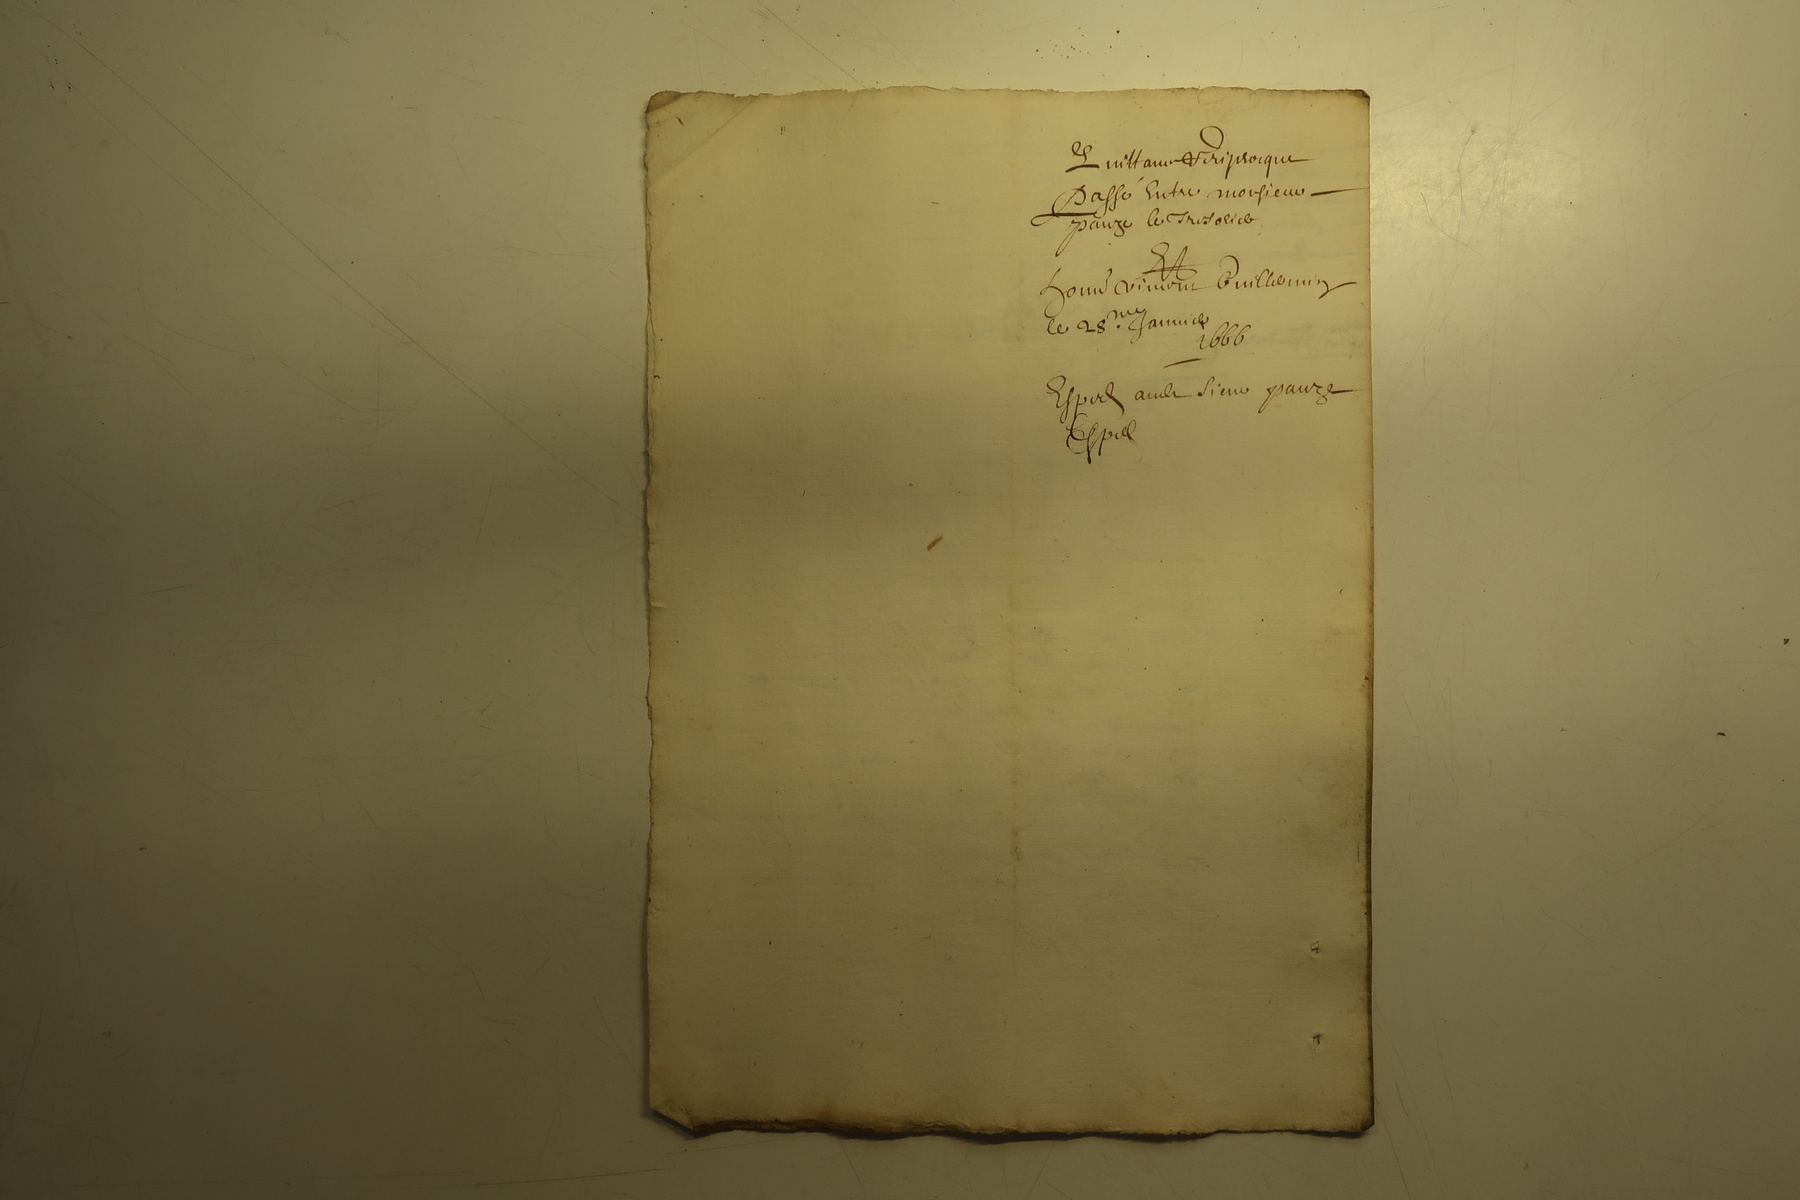 Quittance Reciproque
Passé Entre monsieur
pauze le Tresorier
Et
honn̄e vincent Guilhermin
le 28me Janvier
1666
Expedié audit sieur pauze
Expedié